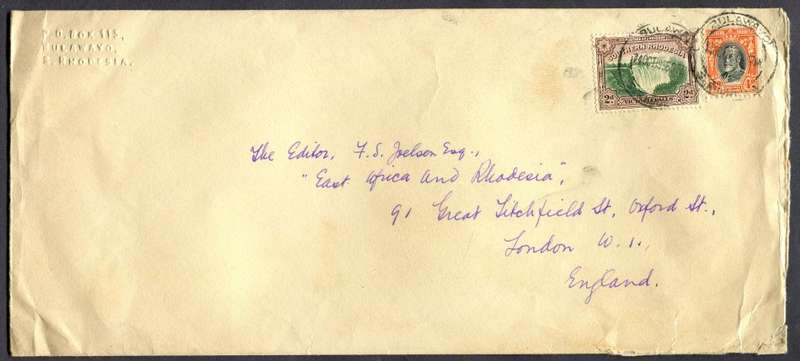 P.O. BOX 315,
BULAWAYO,
S. RHODESIA.
BULAWAYO
SOUTHERN RHODESIA
2d 2d
BULAWAYO
The Editor, F. S. Joelson Esq.,
"East Africa and Rhodesia",
91 Great Titchfield St, Oxford St.,
London W. 1.,
England.